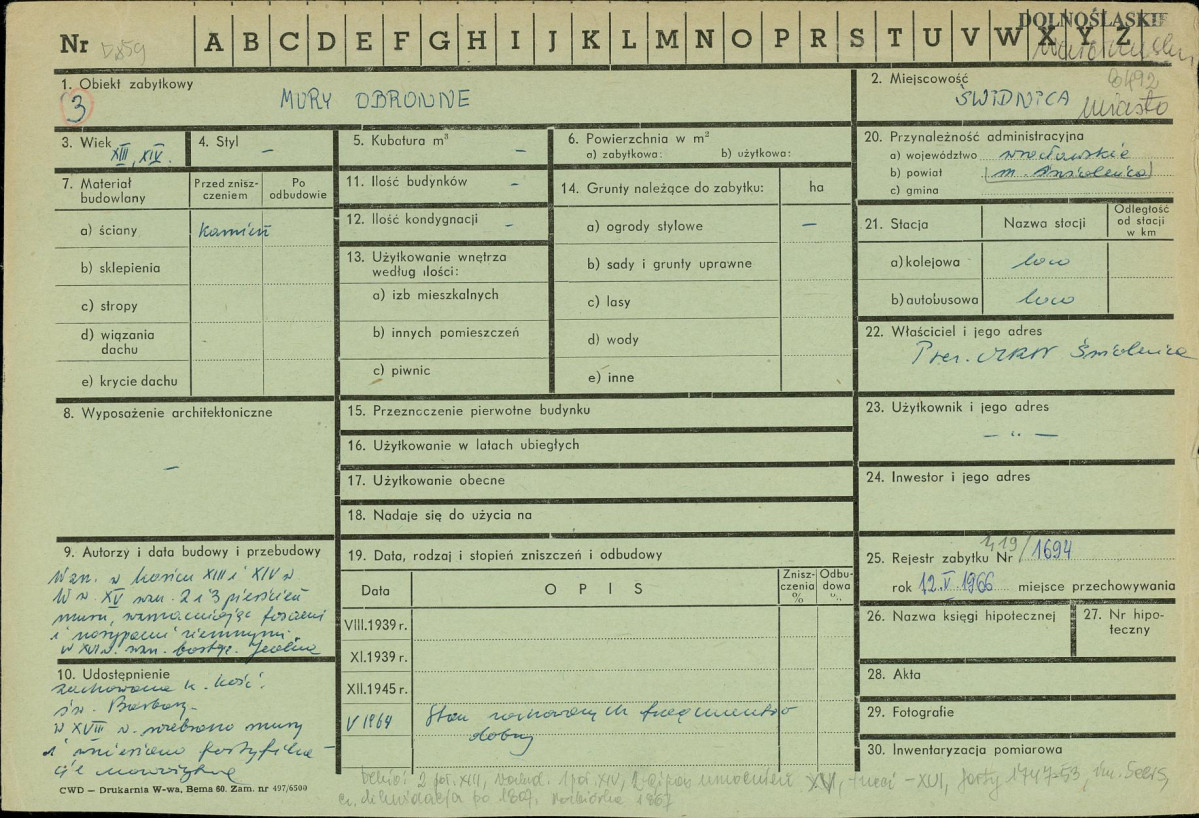 DOLNOŚLĄSKIE
Nr A B C D E F G H I J K L M N O P R S T U V W X Y Z
1. Obiekt zabytkowy
3
MURY OBRONNE
2. Miejscowość
ŚWIDNICA
miasto
3. Wiek XIII, XIV.
4. Styl –
5. Kubatura m³ –
6. Powierzchnia w m²
a) zabytkowa: b) użytkowa:
20. Przynależność administracyjna
a) województwo wrocławskie
b) powiat (m. Świdnica)
c) gmina
7. Materiał budowlany
Przed zniszczeniem
Po odbudowie
a) ściany kamień
b) sklepienia
c) stropy
d) wiązania dachu
e) krycie dachu
11. Ilość budynków –
12. Ilość kondygnacji –
13. Użytkowanie wnętrza
według ilości:
a) izb mieszkalnych
b) innych pomieszczeń
c) piwnic
14. Grunty należące do zabytku: ha
a) ogrody stylowe –
b) sady i grunty uprawne
c) lasy
d) wody
e) inne
21. Stacja
Nazwa stacji
Odległość
od stacji
w km
a) kolejowa loco
b) autobusowa loco
22. Właściciel i jego adres
Prez. MRN Świdnica
8. Wyposażenie architektoniczne
–
15. Przeznaczenie pierwotne budynku
16. Użytkowanie w latach ubiegłych
17. Użytkowanie obecne
18. Nadaje się do użycia na
23. Użytkownik i jego adres
– " –
24. Inwestor i jego adres
9. Autorzy i data budowy i przebudowy
Wzn. w końcu XIII i XIV w
W w. XV wzn. 2 i 3 pierścień
muru, wzmacniając fosami
i nasypami ziemnymi.
w XVI w. wzn. bastje. Jedna
10. Udostępnienie
zachowana k. kość.
św. Barbary.
w XVIII w. rozebrano mury
i wzniesiono fortyfika-
cje nowożytne
19. Data, rodzaj i stopień zniszczeń i odbudowy
Data
O P I S
Zniszczenia %
Odbudowa %
VIII.1939 r.
XI.1939 r.
XII.1945 r.
V 1964 Stan zachowanych fragmentów
dobry
25. Rejestr zabytku Nr 419/1694
rok 12.V.1966 miejsce przechowywania
26. Nazwa księgi hipotecznej
27. Nr hipoteczny
28. Akta
29. Fotografie
30. Inwentaryzacja pomiarowa
CWD – Drukarnia W-wa, Bema 60. Zam. nr 497/6500
2 poł. XIII, 1 poł. XIV, XVI, forty 1747-53,
likwidacja po 1807, rozbiórka 1867